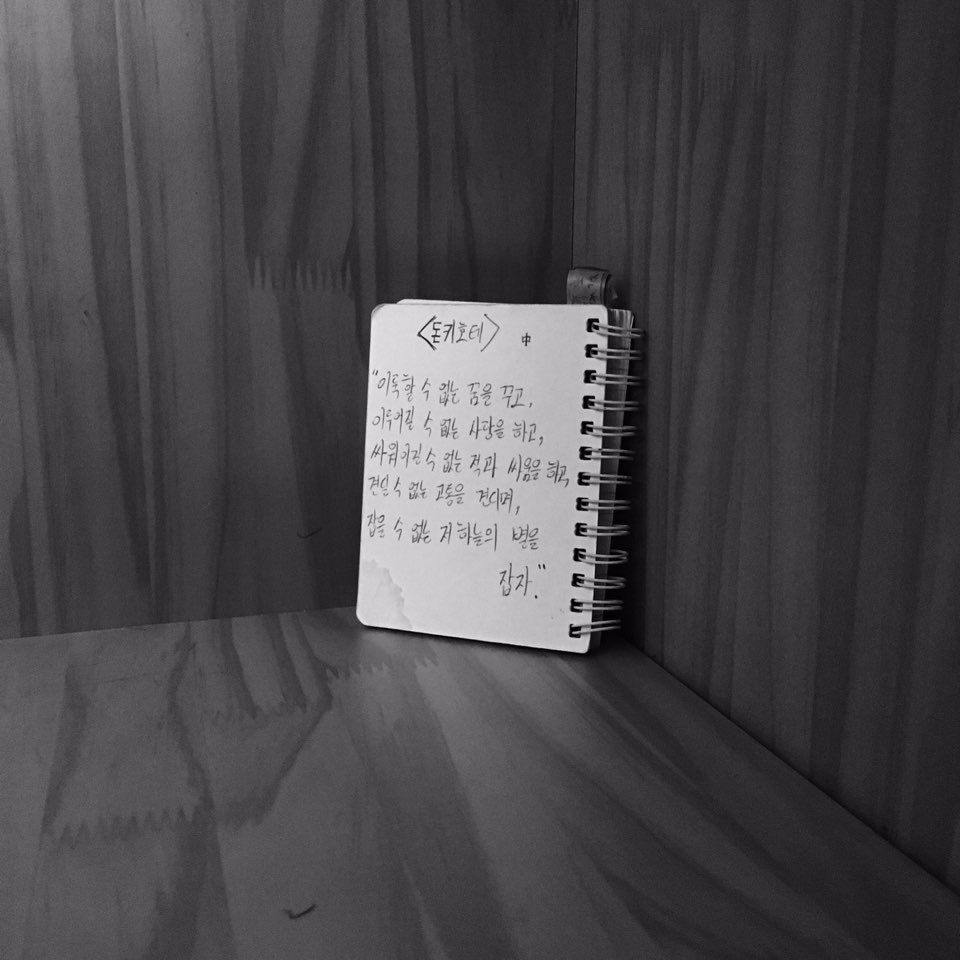 <돈키호테> 中
"이룩할 수 없는 꿈을 꾸고,
이루어질 수 없는 사랑을 하고,
싸워이길 수 없는 적과 싸움을 하고,
견딜 수 없는 고통을 견디며,
잡을 수 없는 저 하늘의 별을
잡자."